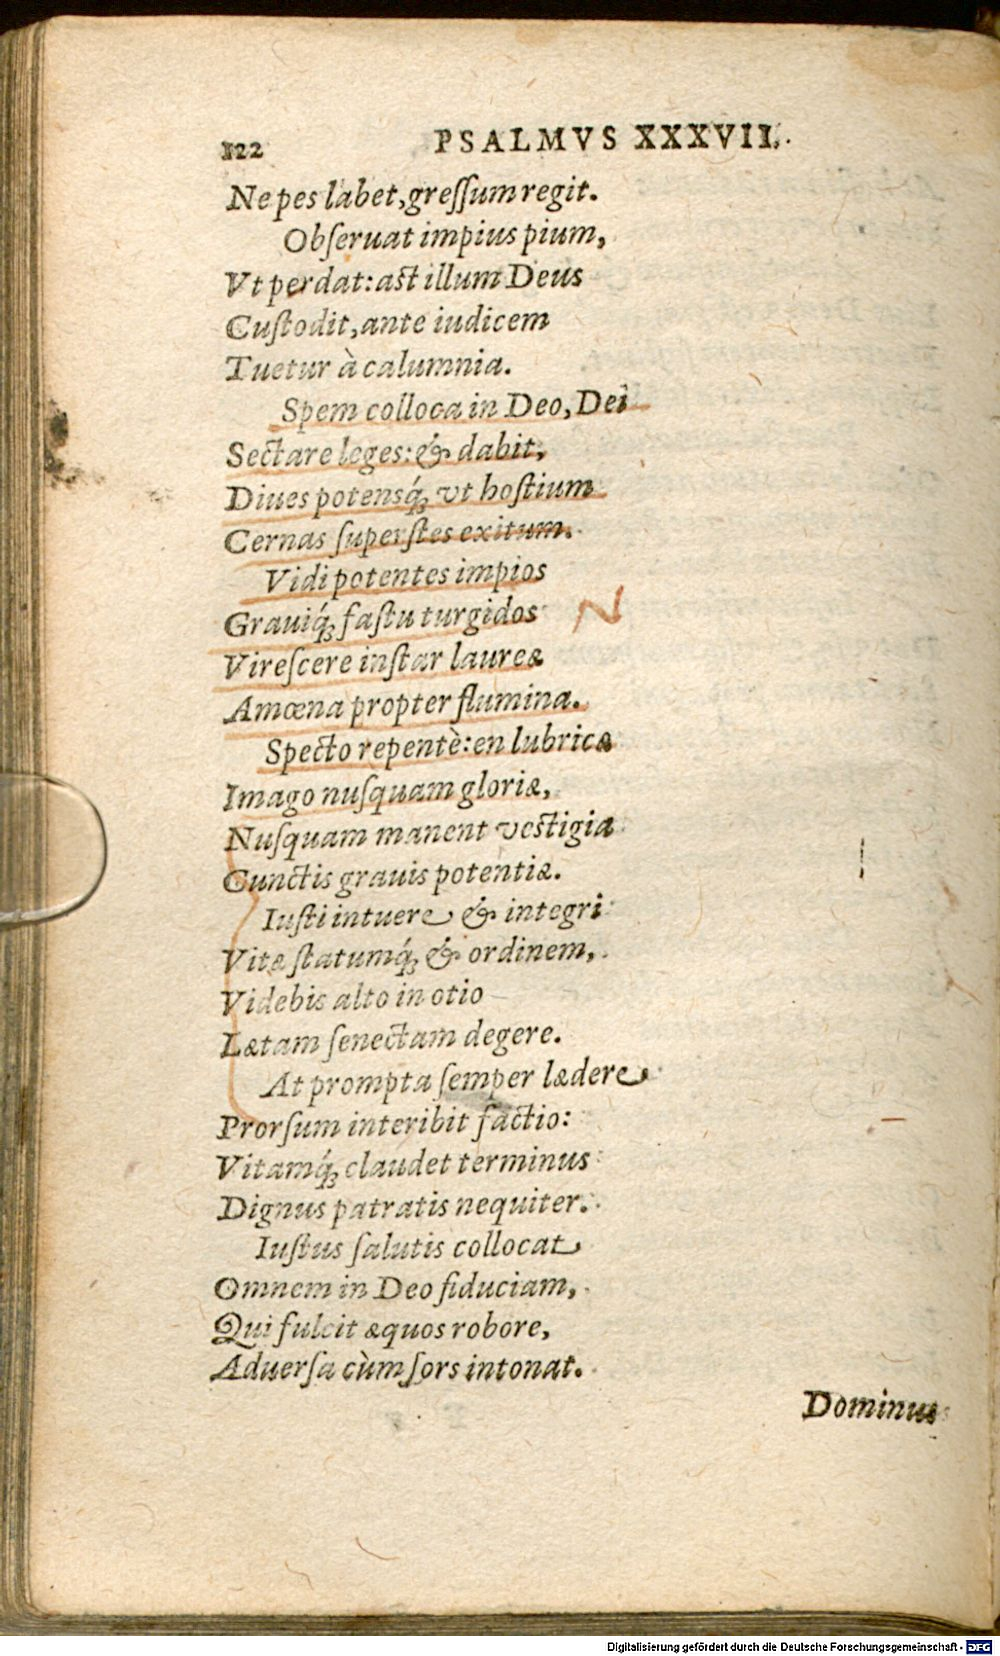 122 PSALMVS XXXVII.
Ne pes labet, greſſum regit.
Obſeruat impius pium,
Vt perdat: aſt illum Deus
Cuſtodit, ante iudicem
Tuetur à calumnia.
Spem colloca in Deo, Dei
Sectare leges: & dabit,
Diues potensq́ꝫ vt hoſtium
Cernas ſuperſtes exitum.
Vidi potentes impios
Grauiq́ꝫ faſtu turgidos
Vireſcere inſtar laureæ
Amœna propter flumina.
Specto repentè: en lubricæ
Imago nuſquam gloriæ,
Nuſquam manent veſtigia
Cunctis grauis potentiæ.
Iuſti intuere & integri
Vitæ ſtatumq́ꝫ & ordinem,
Videbis alto in otio
Lætam ſenectam degere.
At prompta ſemper lædere
Prorſum interibit factio:
Vitamq́ꝫ claudet terminus
Dignus patratis nequiter.
Iuſtus ſalutis collocat
Omnem in Deo fiduciam,
Qui fulcit æquos robore,
Aduerſa cùm ſors intonat.
Dominus
Digitalisierung gefördert durch die Deutsche Forschungsgemeinschaft - DFG